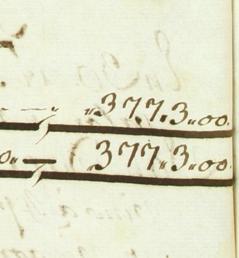 -- „377.3„00.
0„— 377.3„00.